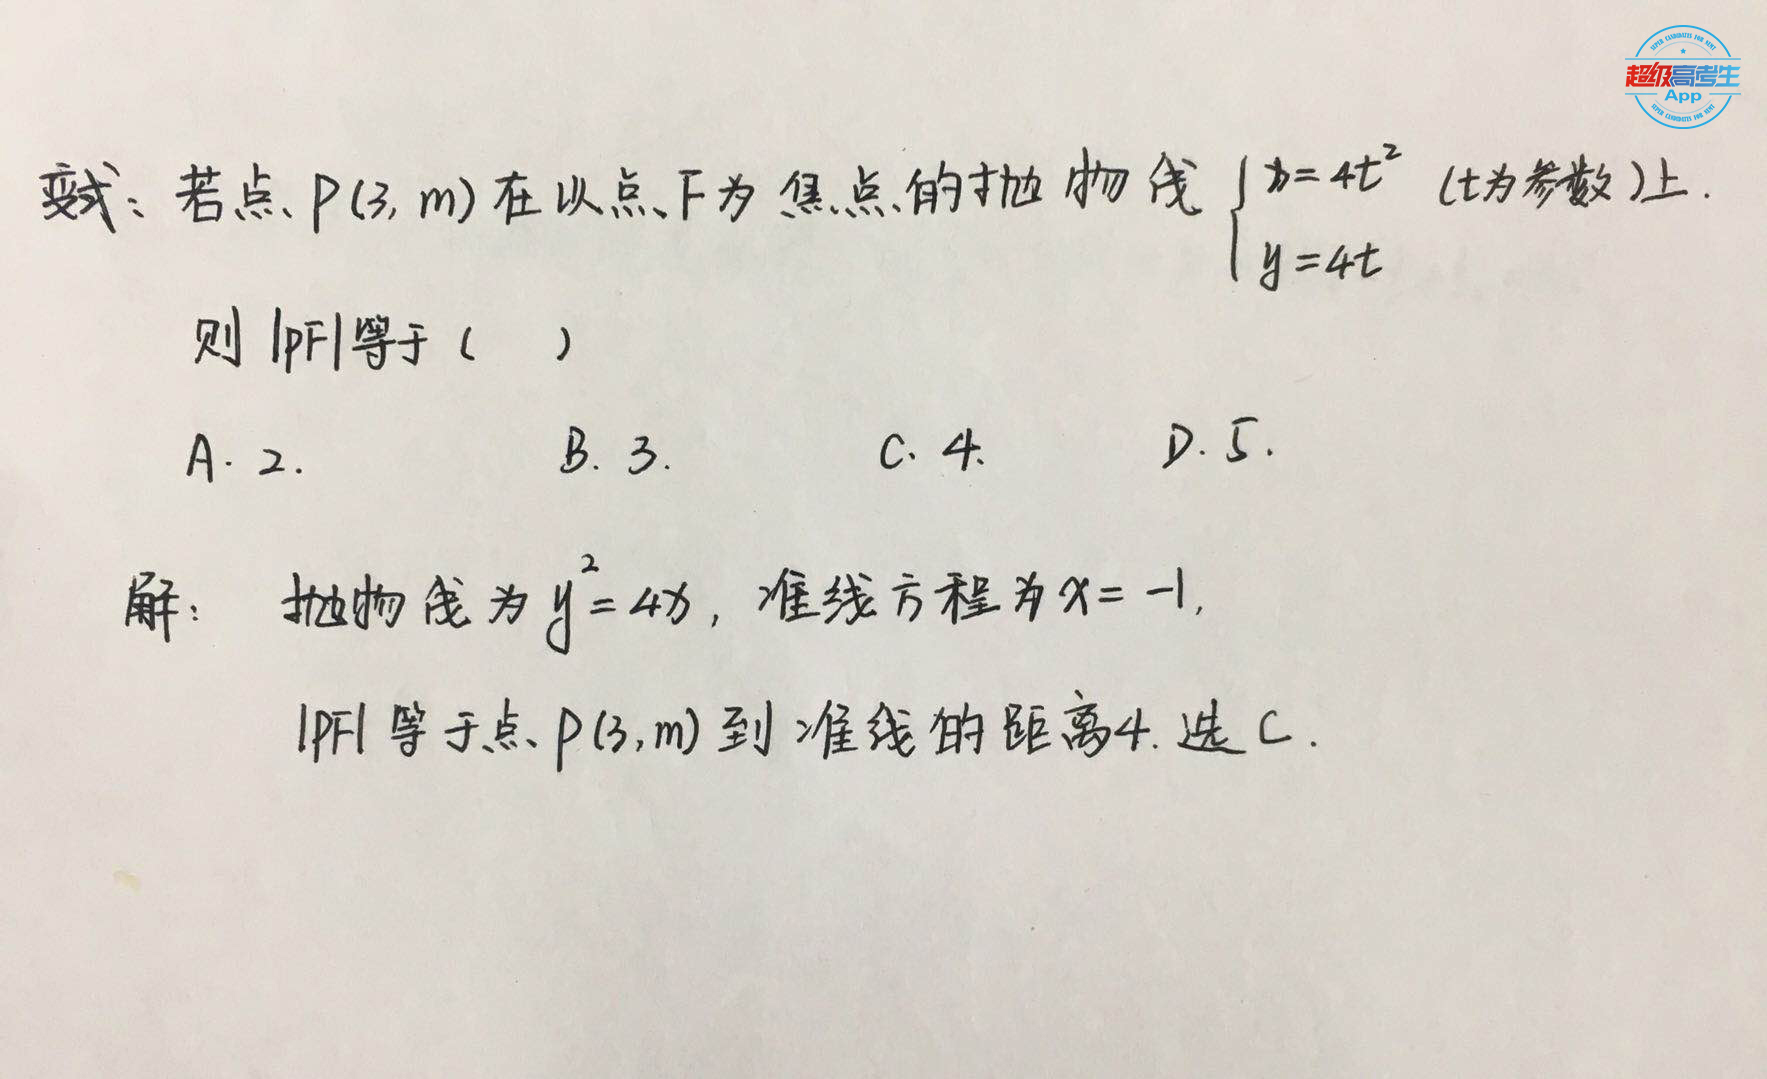 SUPER CANDIDATES FOR NEMT
超级高考生
App
SUPER CANDIDATES FOR NEMT
变式：若点P(3, m)在以点F为焦点的抛物线{x=4t² (t为参数)上.
y=4t
则|PF|等于( )
A. 2. B. 3. C. 4. D. 5.
解： 抛物线为y²=4x, 准线方程为x=-1,
|PF|等于点P(3,m)到准线的距离4. 选C.